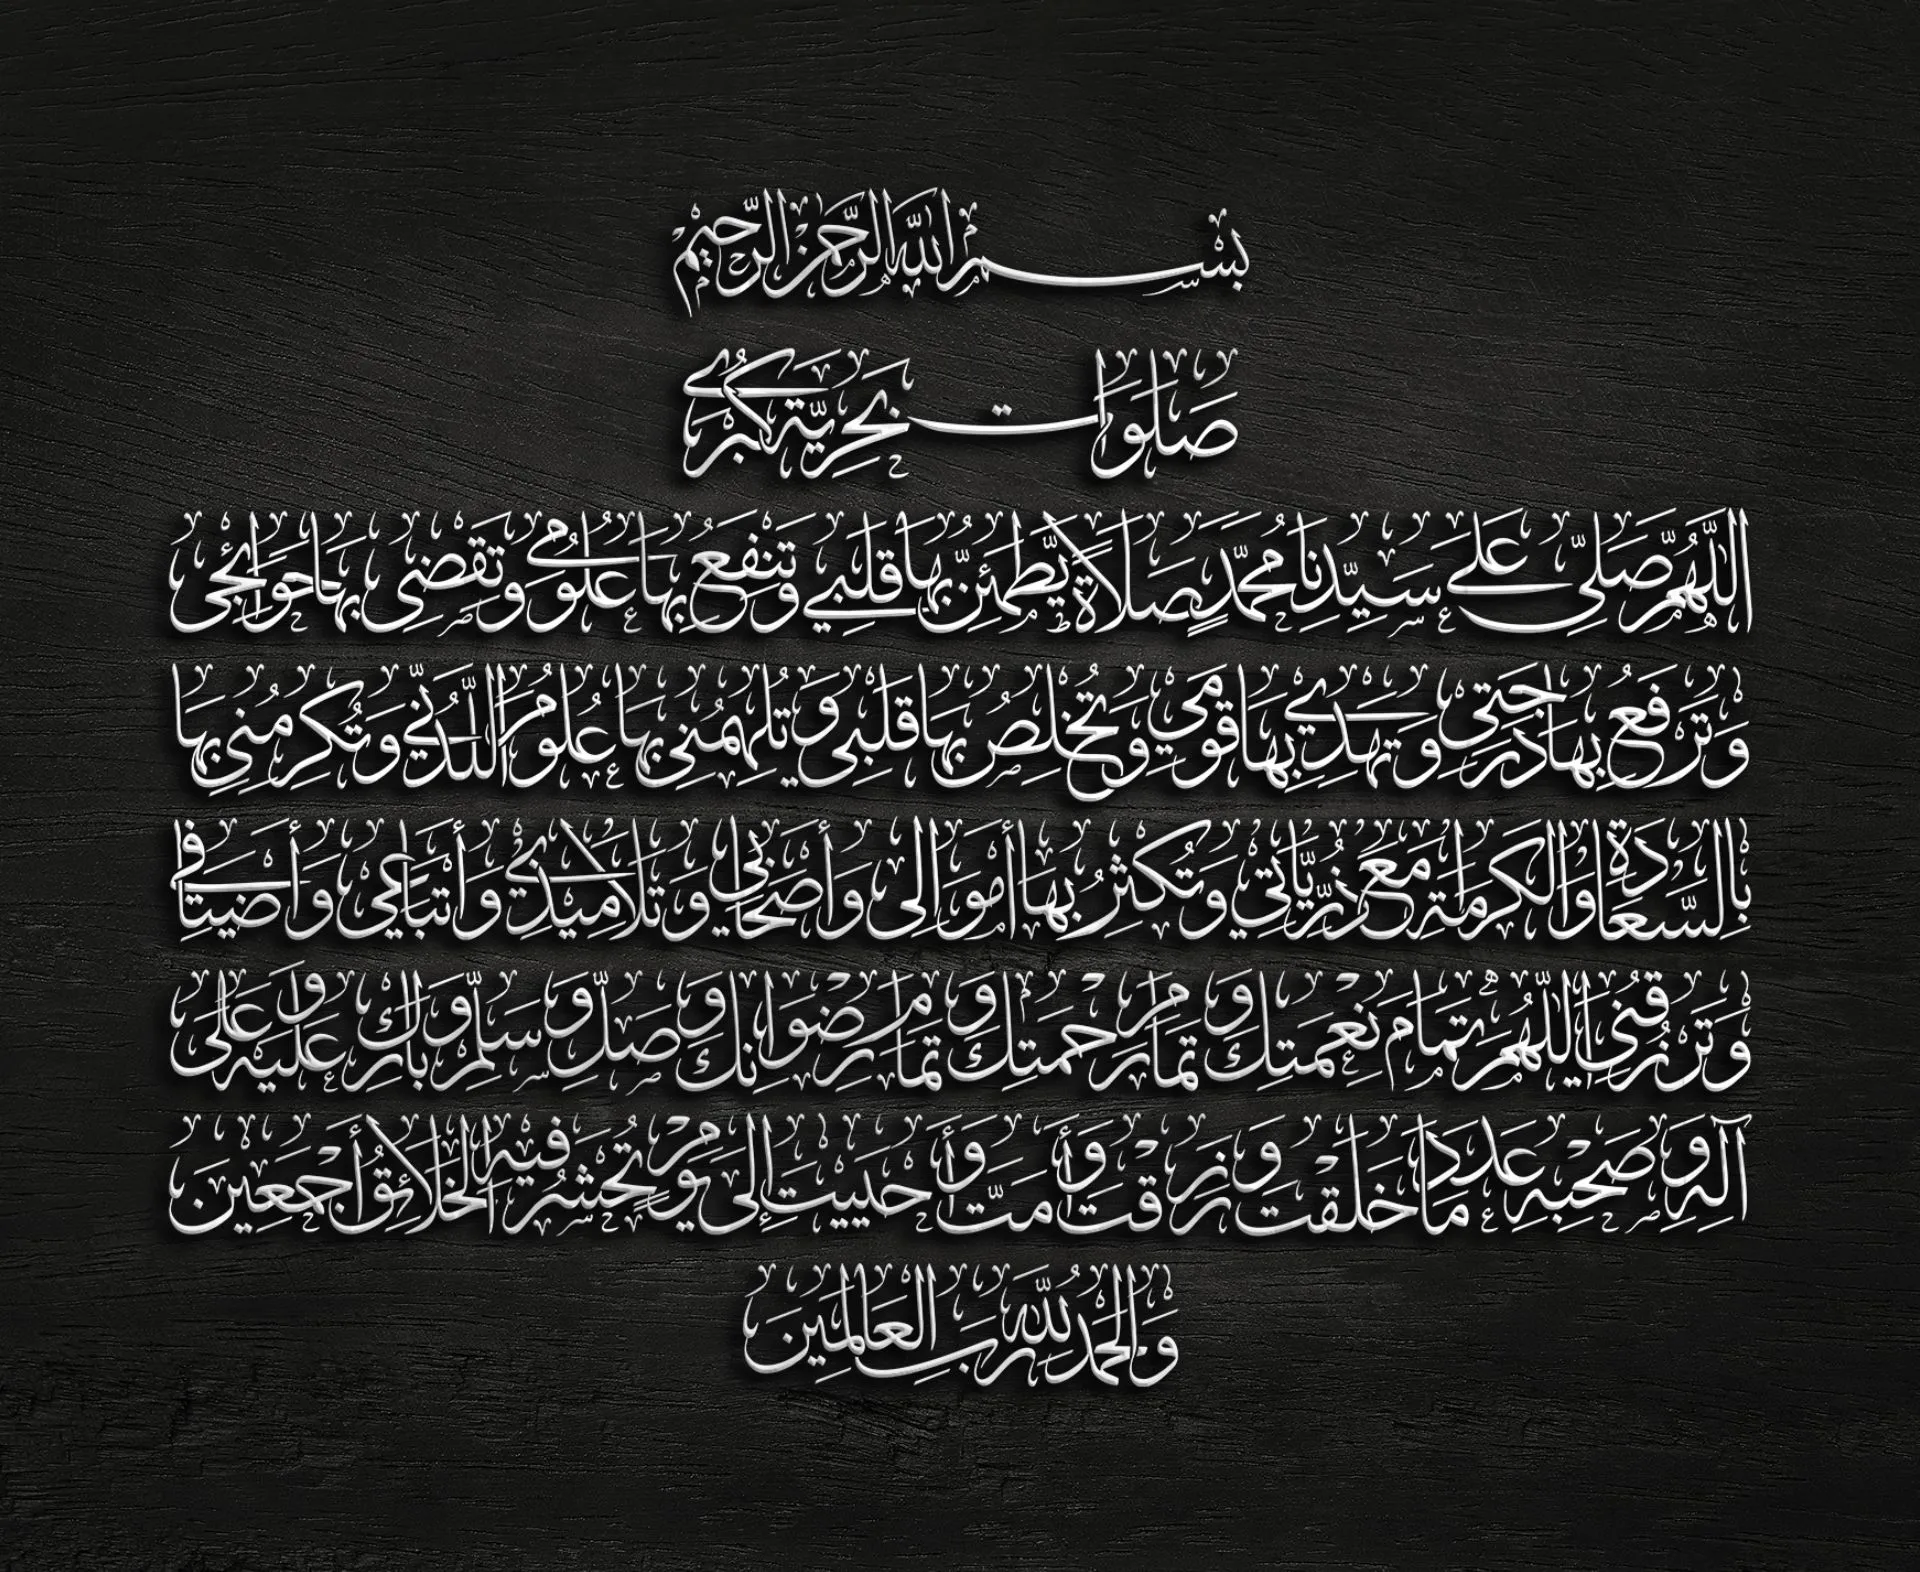 بِسْمِ اللهِ الرَّحْمٰنِ الرَّحِيمِ
صَلَوَات بَحْرِيَّة كُبْرَى
اَللّٰهُمَّ صَلِّي عَلَى سَيِّدِنَا مُحَمَّدٍ صَلَاةً يَطْمَئِنُّ بِهَا قَلْبِي وَتَنْفَعُ بِهَا عُلُومِي وَتَقْضِى بِهَا حَوَائِجِى
وَتَرْفَعُ بِهَا دَرَجَتِى وَتَهْدِي بِهَا قَوْمِي وَتُخْلِصُ بِهَا قَلْبِى وَتُلْهِمُنِى بِهَا عُلُومَ اللَّدُنِّي وَتُكْرِمُنِى بِهَا
بِالسَّعَادَةِ وَالْكَرَمَةِ مَعَ ذُرِّيَّاتِي وَتُكْثِرُ بِهَا أَمْوَالِى وَأَصْحَابِي وَتَلَامِيذِي وَأَتْبَاعِي وَأَضْيَافِى
وَتَرْزُقُنِى اللّٰهُمَّ تَمَامَ نِعْمَتِكَ وَتَمَامَ رَحْمَتِكَ وَتَمَامَ رِضْوَانِكَ وَصَلِّ وَسَلِّمْ وَبَارِكْ عَلَيْهِ وَعَلَى
آلِهِ وَصَحْبِهِ عَدَدَ مَا خَلَقْتَ وَرَزَقْتَ وَأَمَتَّ وَأَحْيَيْتَ إِلَى يَوْمٍ تُحْشَرُ فِيهِ الْخَلَائِقُ أَجْمَعِينَ
وَالْحَمْدُ لِلّٰهِ رَبِّ الْعَالَمِينَ